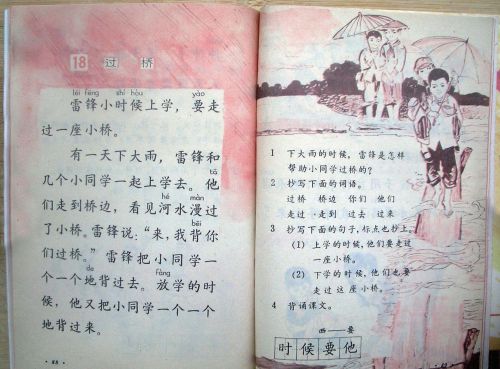 18 过 桥
léi fēng shí hòu yào
雷锋小时候上学，要走
过一座小桥。
有一天下大雨，雷锋和
tā
几个小同学一起上学去。他
hé màn
们走到桥边，看见河水漫过
bēi
了小桥。雷锋说："来，我背你
们过桥。"雷锋把小同学一
de fàng
个一个地背过去。放学的时
候，他又把小同学一个一个
地背过来。
· 88 ·
1 下大雨的时候，雷锋是怎样
帮助小同学过桥的？
2 抄写下面的词语。
过桥 桥边 你们 他们
走过 走到 过去 过来
3 抄写下面的句子，标点也抄上。
(1) 上学的时候，他们要走过
一座小桥。
(2) 下学的时候，他们也要
走过这座小桥。
4 背诵课文。
西——要
时候要他